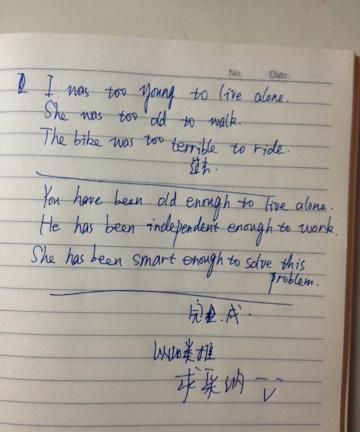 No. Date.
I was too young to live alone.
She was too old to walk.
The bike was too terrible to ride.
You have been old enough to live alone.
He has been independent enough to work.
She has been smart enough to solve this
problem.
完成.
以此类推
求采纳